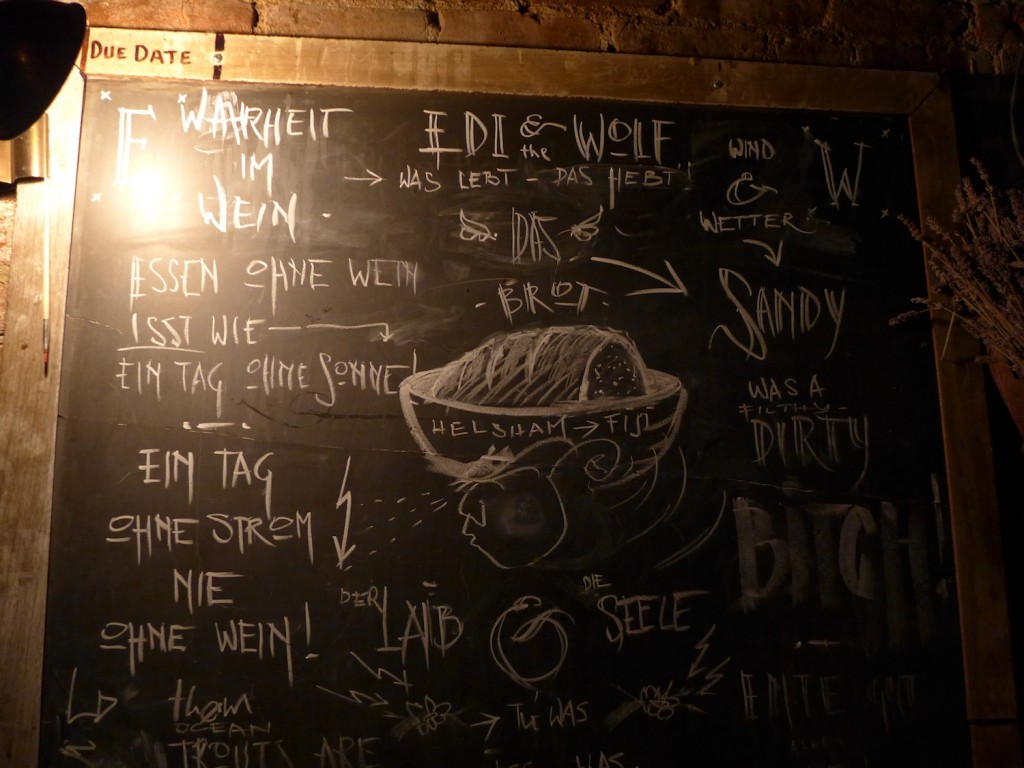 DUE DATE
F
WAHRHEIT
IM
WEIN.
ESSEN OHNE WEIN
ISST WIE
EIN TAG OHNE SONNE!
EIN TAG
OHNE STROM
NIE
OHNE WEIN!
them
OCEAN
TROUTS ARE
EDI & the WOLF
WAS LEBT - DAS HEBT!
DAS
-BROT-
HELSHAM → FIJI
DER LAIB & DIE SEELE
→ TU WAS
WAS
WIND
&
WETTER
W
SANDY
WAS A
FILTHY-
DIRTY
BITCH!